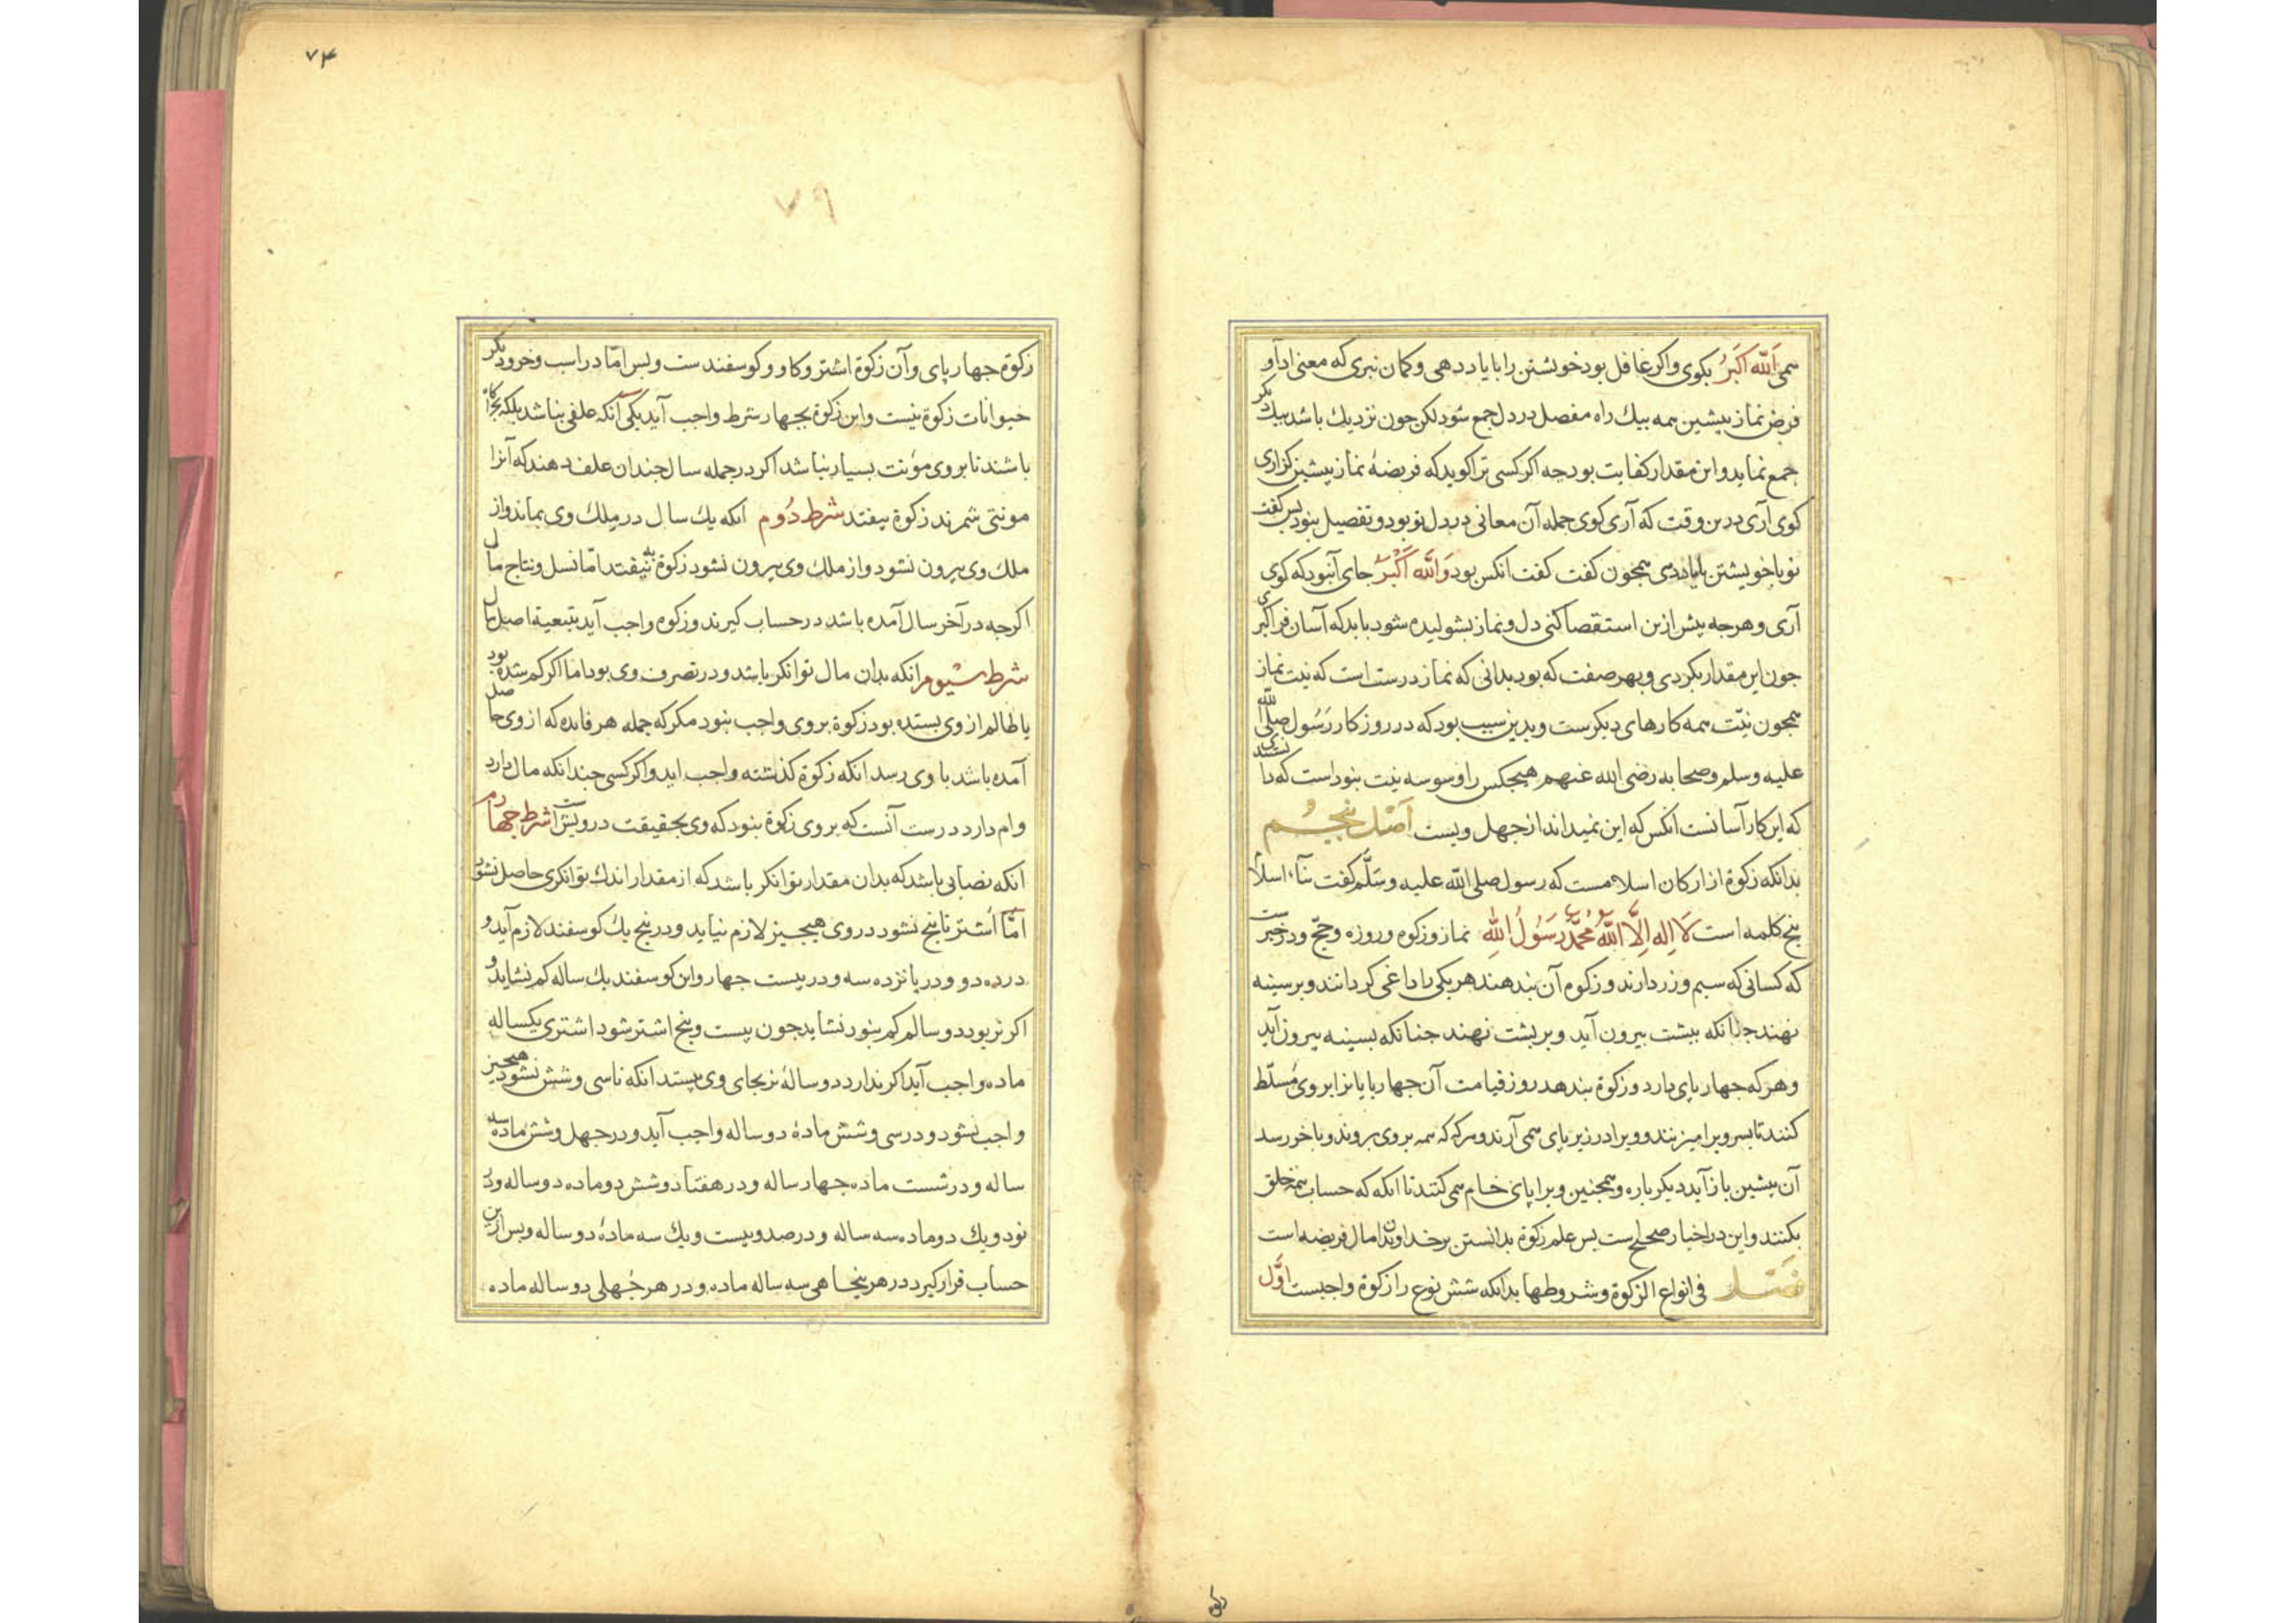 همی الله اکبر بکوی واکر غافل بود خویشتن را بایاد دهی وکمان نبری که معنی ادا و
فرض نماز پیشین همه بیك راه مفصل در دل جمع شود لکن چون نزدیك باشد بیك دیگر
جمع نماید واین مقدار کفایت بود چه اکر کسی ترا کوید که فریضهٔ نماز پیشین کزاری
کوی آری درین وقت که آری کوی جمله آن معانی در دل تو بود و تفصیل نبود پس کفت
تو باخویشتن بایاددهی همچون کفت کفت انکس بود والله اکبر جای آنبود که کوی
آری وهرچه بیش ازین استقصا کنی دل ونماز بشولیده شود باید که آسان فراکیری
چون این مقدار بکردی وبهر صفت که بود بدانی که نماز درست است که نیت نماز
همچون نیّت همه کارهای دیکرست وبدین سبب بود که در روزکار رسول صلی الله
علیه وسلم وصحابه رضی الله عنهم هیچکس را وسوسه نیت نبود است که دانستندی
که این کار آسانست انکس که این نمیداند از جهل ویست اصل پنجم
بدانکه زکوة از ارکان اسلامست که رسول صلی الله علیه وسلّم کفت بناء اسلام
پنج کلمه است لا اله الّا الله محمّد رسول الله نماز وزکوه وروزه وحجّ ودر خبرست
که کسانی که سیم وزر دارند و زکوه آن ندهند هریکی را داغی کردانند وبر سینه
نهند چنانکه ببشت بیرون آید وبر بشت نهند چنانکه بسینه بیرون آید
وهرکه چهارپای دارد وزکوة بندهد روز قیامت آن چهارپایانرا بر وی مسلّط
کنند تا بسر ویرا میزنند وویرا در زیر پای همی آرند وهرکه که همه بر وی بروند وباخر رسد
آن پیشین باز آید دیکرباره وهمچنین ویرا پای خام همی کنند تا انکه که حساب همه خلق
بکنند واین در اخبار صحیح است پس علم زکوة بدانستن برخداوندان مال فریضه است
فصل فی انواع الزکوة وشروطها بدانکه شش نوع را زکوة واجبست اوّل
۷۴
۷۹
زکوة چهارپای وآن زکوة اشتر وکاو وکوسفندست وبس امّا در اسب وخر ودیکر
حیوانات زکوة نیست واین زکوة بچهار شرط واجب آید یکی آنکه علفی نباشد بلکه بچراکاه
باشند تا بر وی مؤنت بسیار نباشد اکر در جمله سال چندان علف دهند که آنرا
مونتی شمرند زکوة بیفتد شرط دوم انکه یك سال در ملك وی بماند واز
ملك وی بیرون نشود واز ملك وی بیرون نشود زکوة بنیفتد امّا نسل ونتاج مال
اکرچه در آخر سال آمده باشد در حساب کیرند وزکوه واجب آید بتبعیة اصل مال
شرط سیوم انکه بدان مال توانکر باشد ودر تصرف وی بود اما اکر کم شده بود
یا ظالم از وی بستده بود زکوة بر وی واجب نبود مکر که جمله هر فایده که از وی حاصل
آمده باشد با وی رسد انکه زکوة کذشته واجب اید واکر کسی چندانکه مال دارد
وام دارد درست آنست که بر وی زکوة نبود که وی بحقیقت درویش است شرط چهارم
انکه نصابی باشد که بدان مقدار توانکر باشد که از مقدار اندك توانکری حاصل نشود
امّا اشتر تا پنج نشود در وی هیچیز لازم نیاید ودر پنج یك کوسفند لازم آید و
در ده دو ودر پانزده سه ودر بیست چهار واین کوسفند یك ساله کم نشاید و
اکر نر بود دو ساله کم نبود نشاید چون بیست وپنج اشتر شود اشتری یکساله
ماده واجب آید اکر ندارد دو سالهٔ نر بجای وی بستد انکه تا سی وشش نشود هیچیز
واجب نشود ودر سی وشش مادهٔ دو ساله واجب آید ودر چهل وشش ماده سه
ساله ودر شست ماده چهار ساله ودر هفتاد وشش دو ماده دو ساله ودر
نود ویك دو ماده سه ساله ودر صد وبیست ویك سه مادهٔ دو ساله وپس ازین
حساب قرار کیرد در هر پنجاهی سه ساله ماده ودر هر چهلی دو ساله ماده